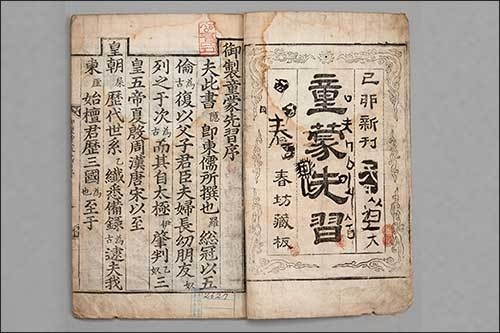 己卯新刊
童蒙先習
春坊藏板
夫
大
御製童蒙先習序
夫此書隱即東儒所撰也羅總冠以五
倫為古復以父子君臣夫婦長幼朋友奴
列之于次為古而其自太極伊肇判乙奴三
皇五帝夏殷周漢唐宋以至
皇朝厓歷代世系乙纖悉備錄為古逮夫我
東厓始檀君歷三國為也至于
2627